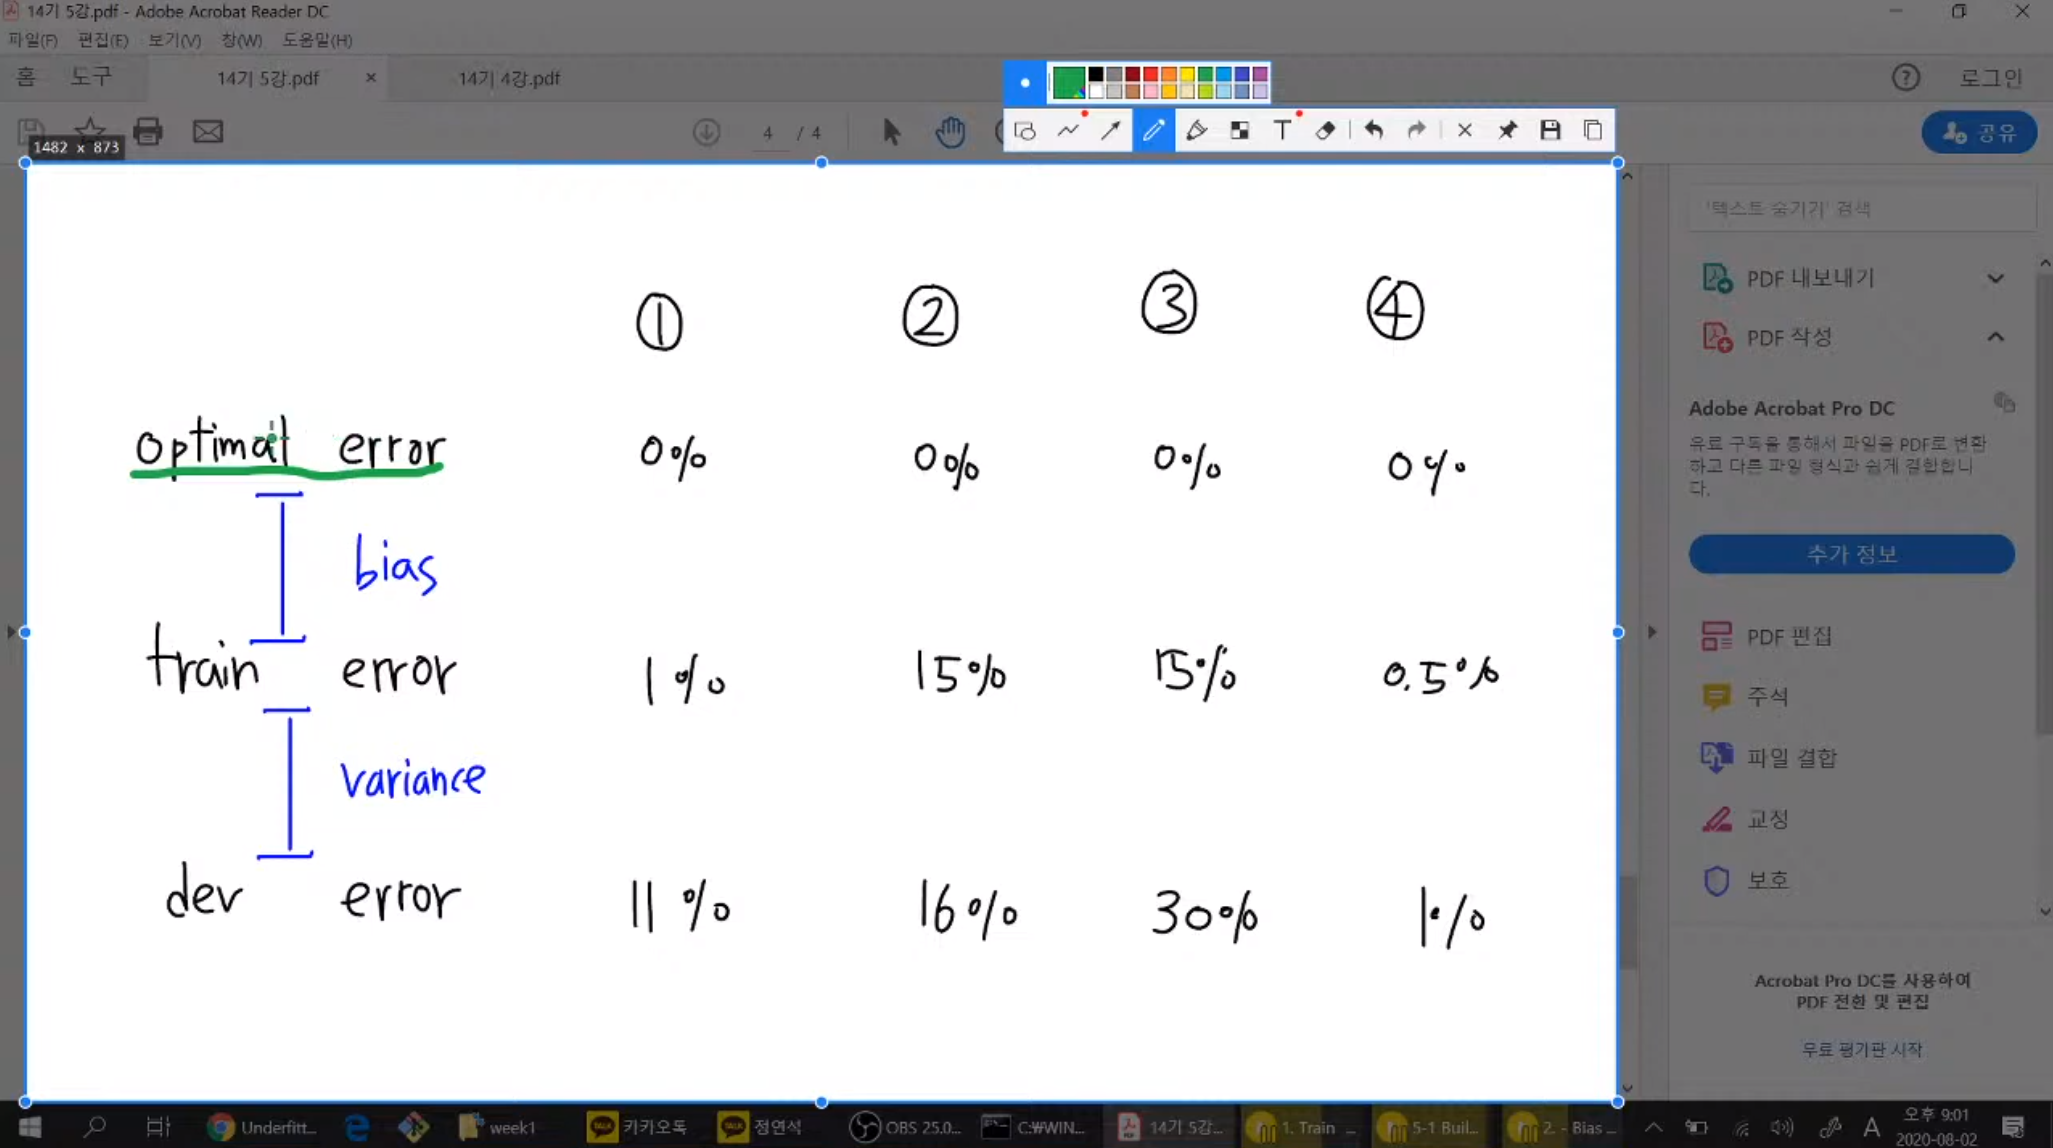 14기 5강.pdf - Adobe Acrobat Reader DC
파일(F) 편집(E) 보기(V) 창(W) 도움말(H)
홈 도구 14기 5강.pdf × 14기 4강.pdf 로그인
4 / 4 공유
1482 x 873
'텍스트 숨기기' 검색
① ② ③ ④
optimal error 0% 0% 0% 0%
bias
train error 1% 15% 15% 0.5%
variance
dev error 11% 16% 30% 1%
PDF 내보내기
PDF 작성
Adobe Acrobat Pro DC
유료 구독을 통해서 파일을 PDF로 변환
하고 다른 파일 형식과 쉽게 결합합니
다.
추가 정보
PDF 편집
주석
파일 결합
교정
보호
Acrobat Pro DC를 사용하여
PDF 전환 및 편집
무료 평가판 시작
Underfitt... week1 카카오톡 정연석 OBS 25.0... C:₩WIN... 14기 5강... 1. Train ... 5-1 Buil... 2. - Bias ... A 오후 9:01
2020-08-02